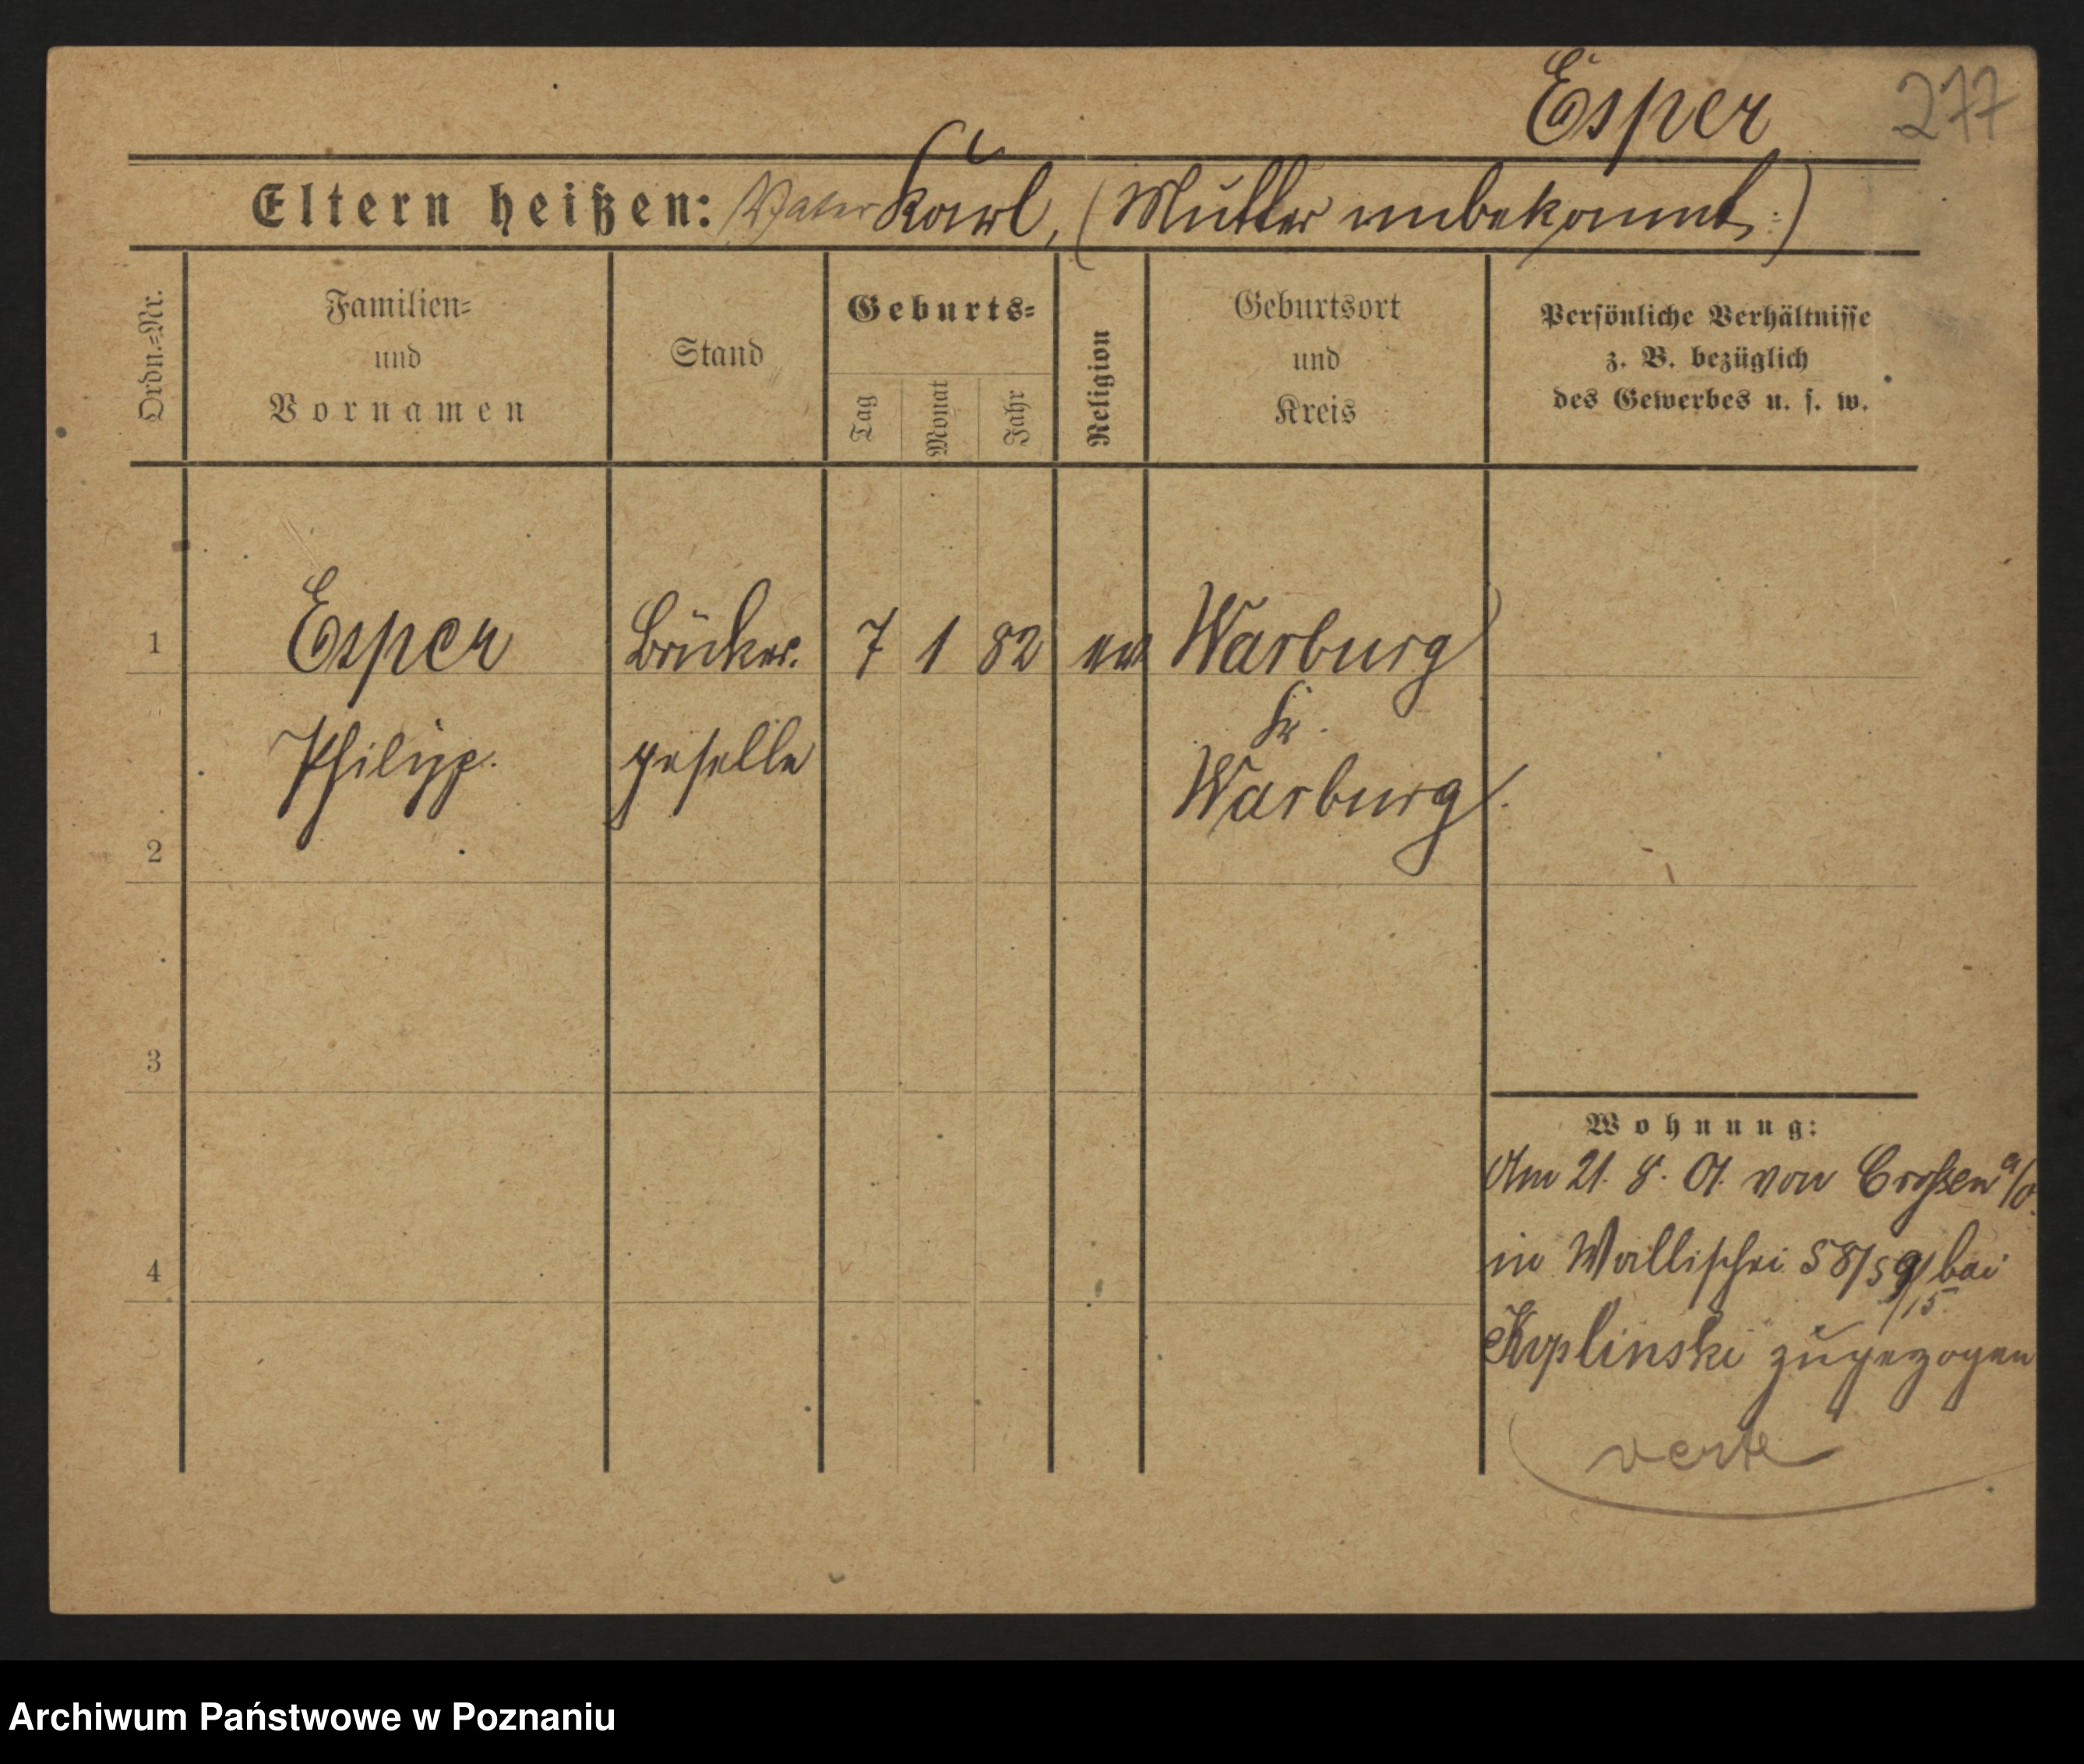 Esper 277
Eltern heißen: Vater Karl, (Mutter unbekannt:)
Ordn.=Nr.
Familien=
und
Vornamen
Stand
Geburts=
Tag
Monat
Jahr
Religion
Geburtsort
und
Kreis
Persönliche Verhältnisse
z. B. bezüglich
des Gewerbes u. s. w.
1 Esper 7 1 82 Warburg
Philipp. geselle Kr.
Warburg.
2
3
4
Wohnung:
Am 21. 8. 01. von Crossen a/O.
in Wallischei 58/59 bei
/15.
zugezogen
verte
Archiwum Państwowe w Poznaniu